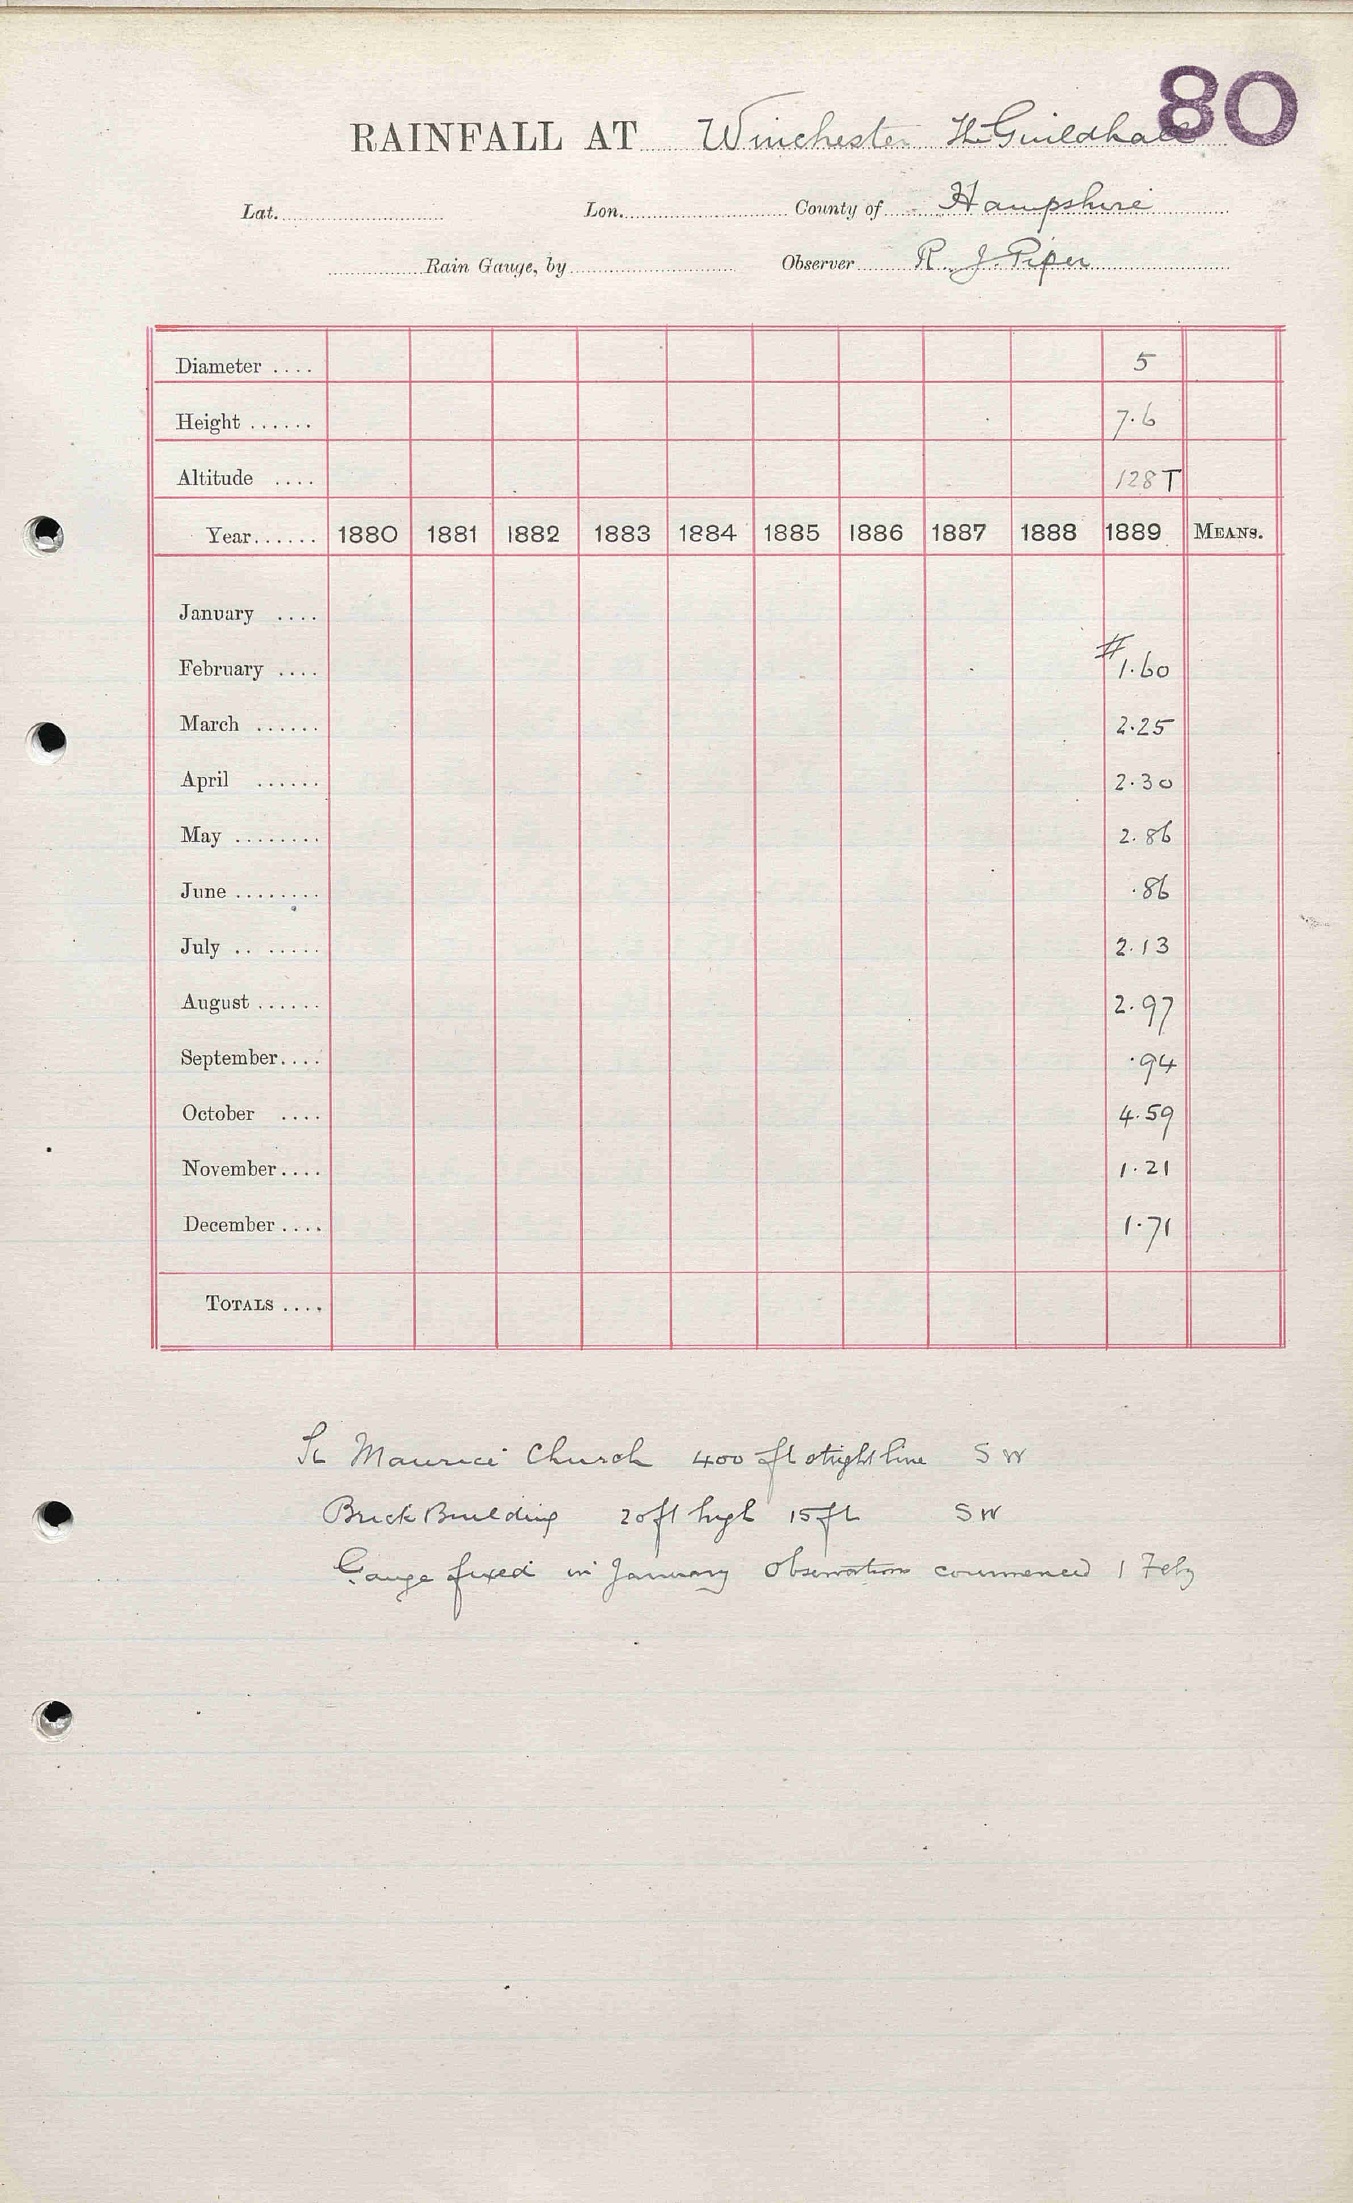 80
RAINFALL AT Winchester The Guildhall
Lat. Lon. County of Hampshire
Rain Gauge, by Observer R. J. Piper
Diameter .... 5
Height ...... 7.6
Altitude .... 128 T
Year...... 1880 1881 1882 1883 1884 1885 1886 1887 1888 1889 MEANS.
January ....
February .... # 1.60
March ...... 2.25
April ...... 2.30
May ........ 2.86
June ........ .86
July .. ..... 2.13
August ...... 2.97
September.... .94
October .... 4.59
November.... 1.21
December .... 1.71
TOTALS ....
St Maurice Church 400 ft stright line S W
Brick Building 20ft high 15ft S W
Gauge fixed in January Observations commenced 1 Feby